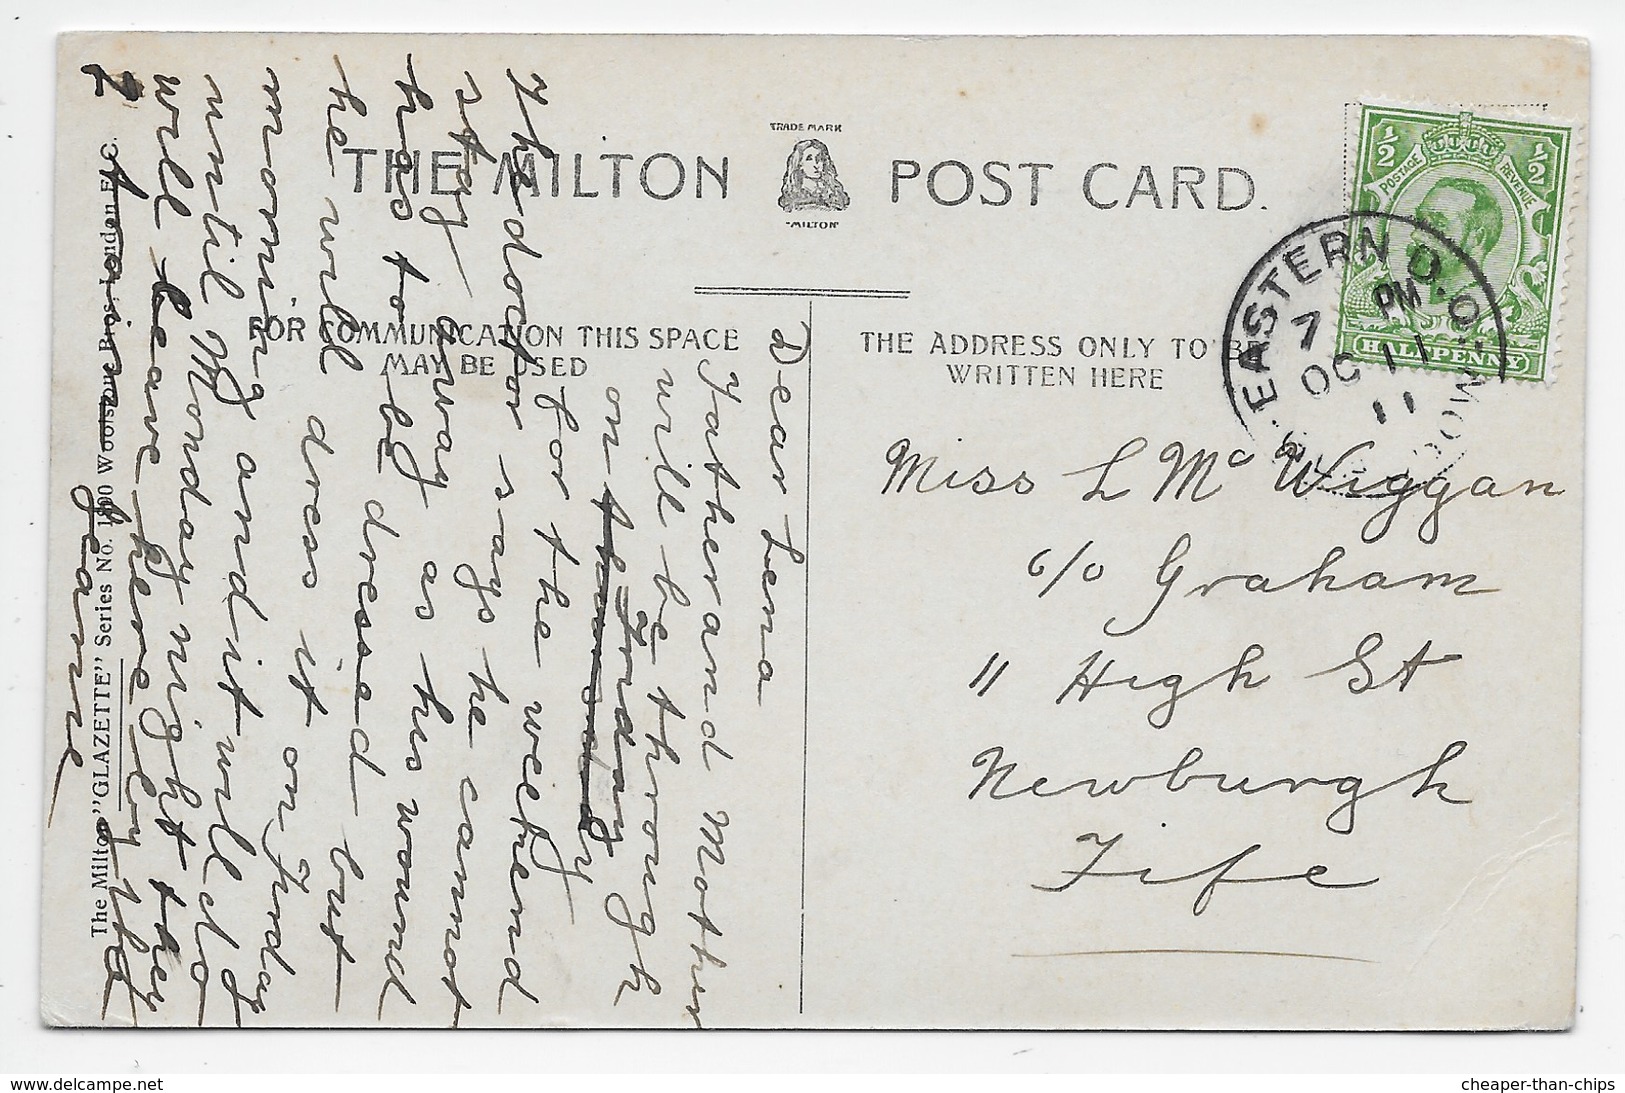 TRADE MARK
THE MILTON POST CARD.
"MILTON"
FOR COMMUNICATION THIS SPACE
MAY BE USED
THE ADDRESS ONLY TO BE
WRITTEN HERE
½ ½
POSTAGE REVENUE
HALFPENNY
EASTERN D.O.
7 PM
OC 11
11
Miss L Mc Wiggan
c/o Graham
11 High St
Newburgh
Fife
Dear Lena
Father and Mother
will be through
on Friday
for the weekend
The doctor says he cannot
stay away as his wound
has to be dressed but
he will dress it on Friday
morning and it will do
until Monday night they
will leave here by the
Jeanie
The Milton "GLAZETTE" Series No. Woolstone Bros., London E.C.
cheaper-than-chips
www.delcampe.net